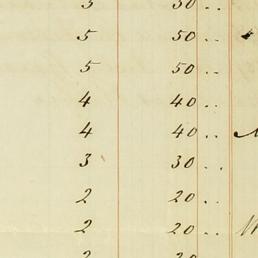 3 30 ..
5 50 ..
5 50 ..
4 40 ..
4 40 ..
3 30 ..
2 20 ..
2 20 ..
2 20